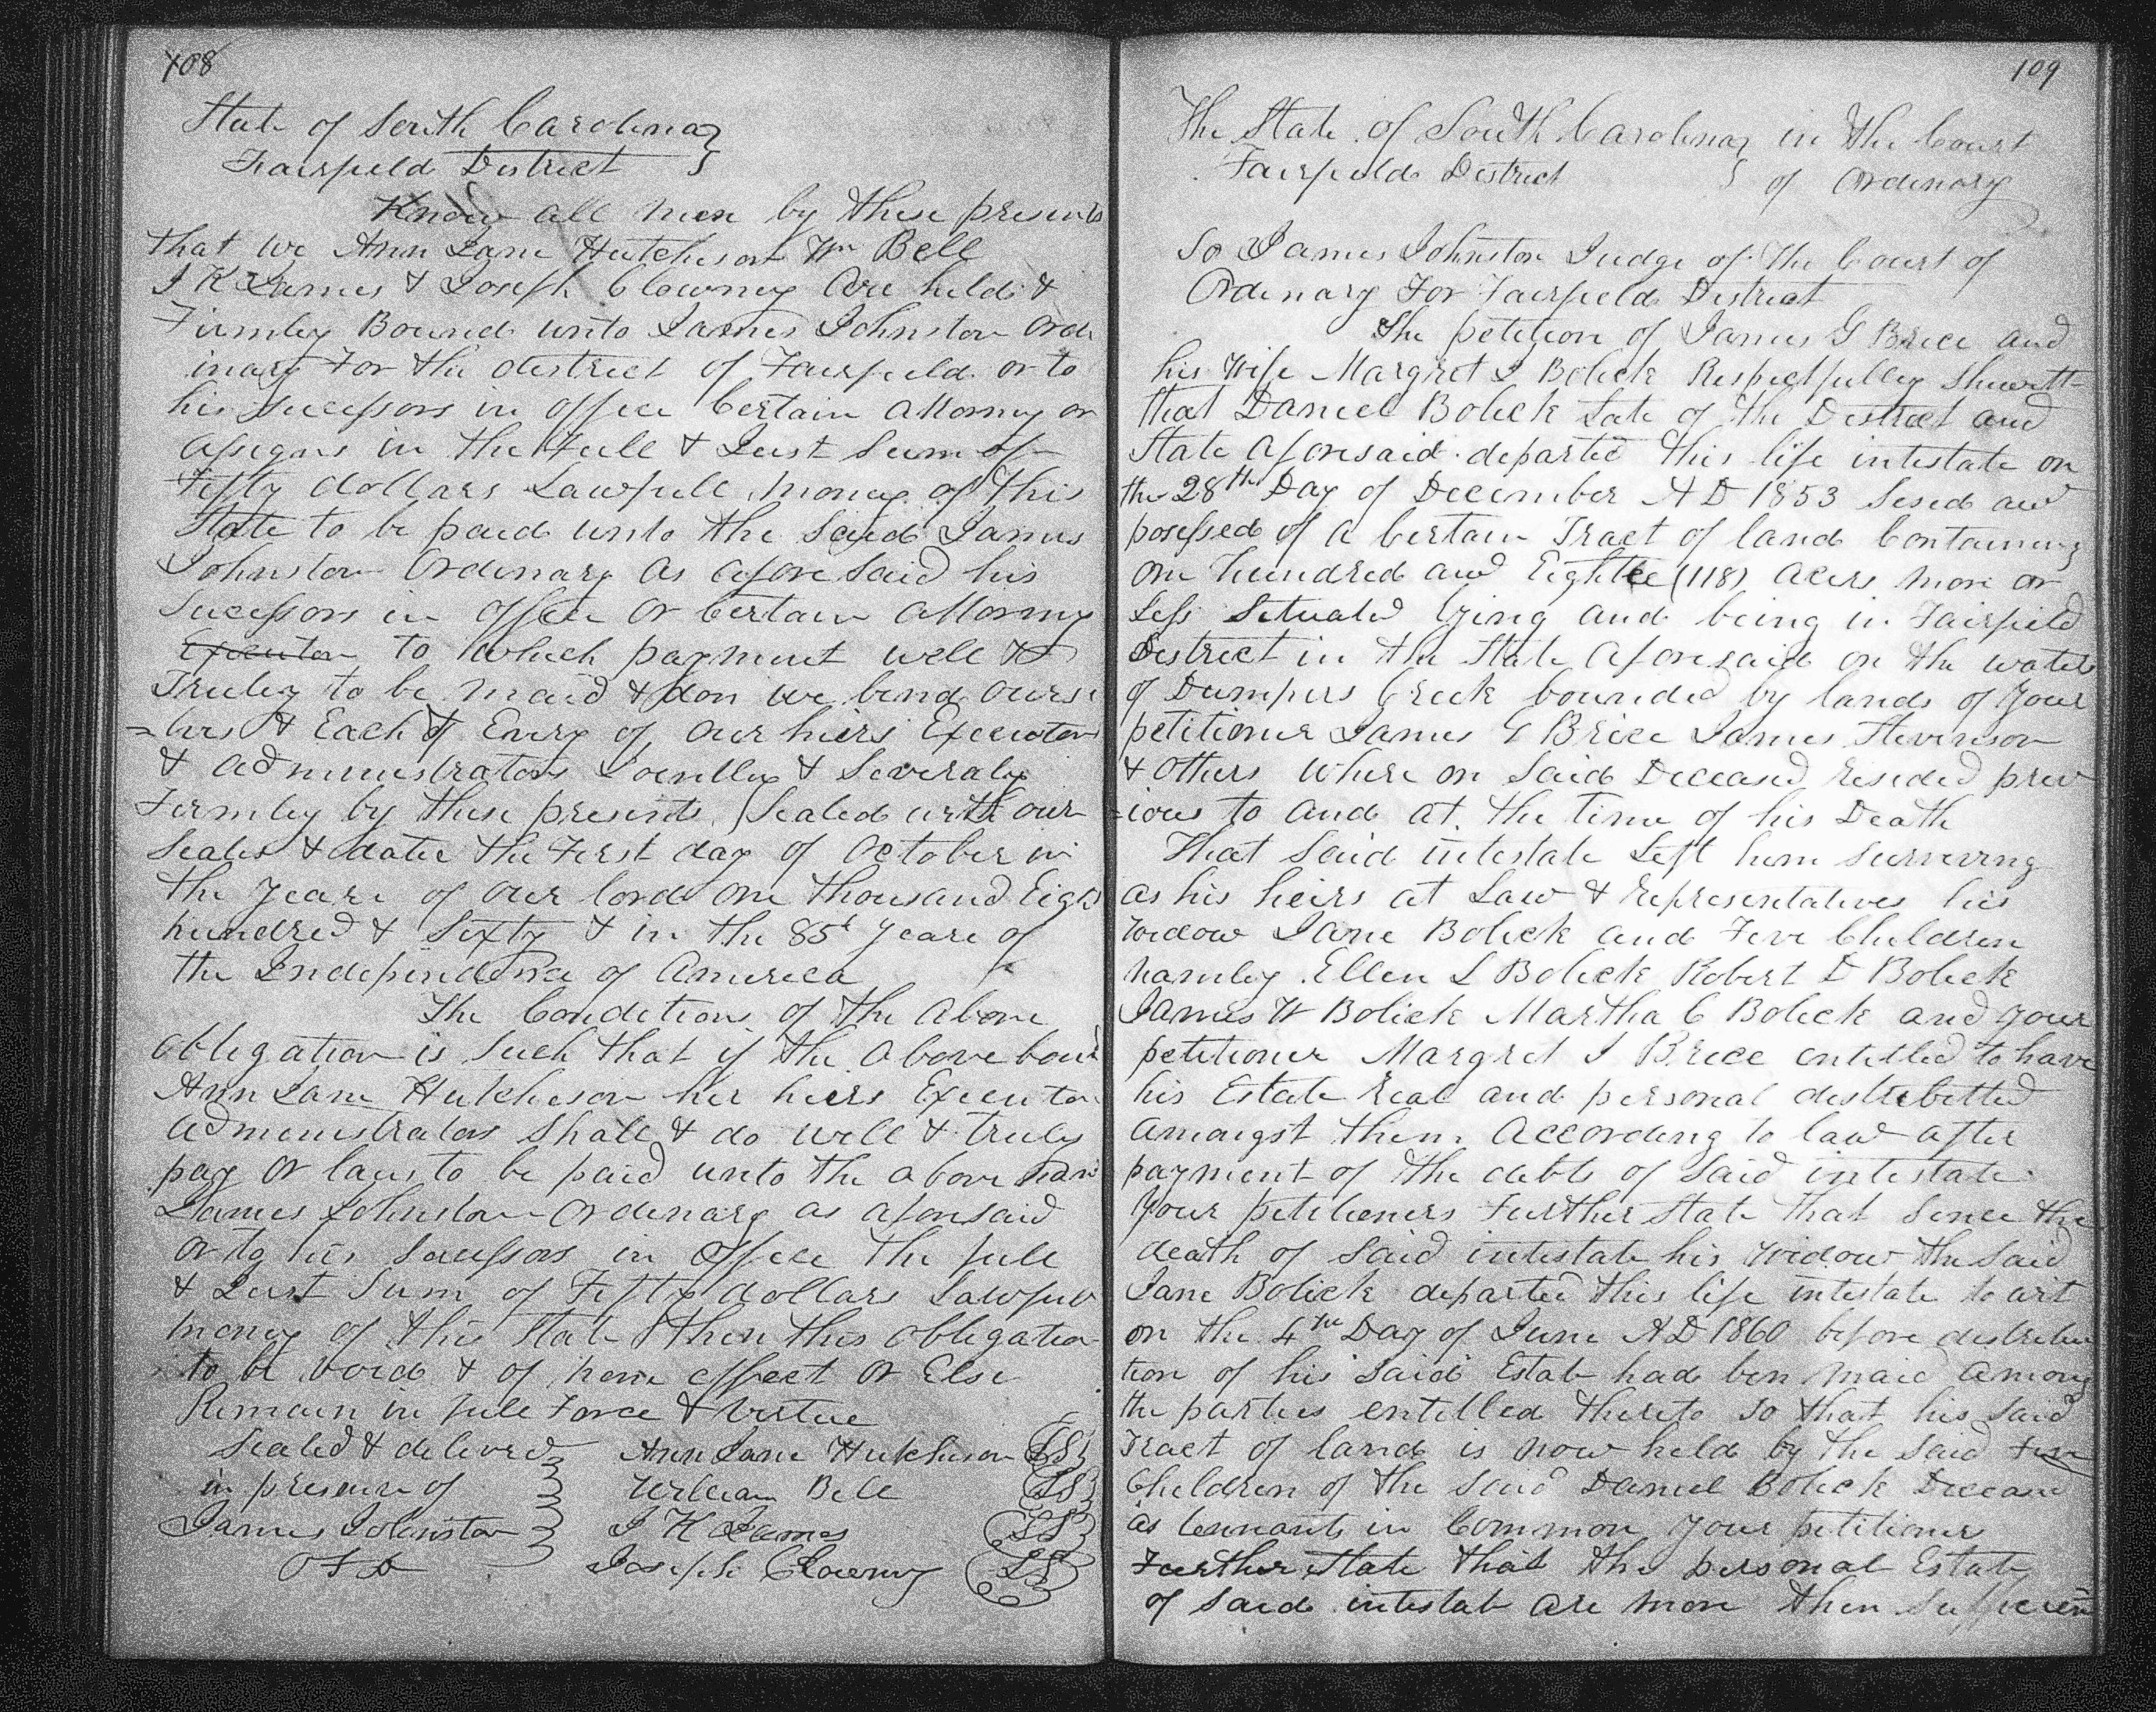 108
State of South Carolina
Fairfield District
Know all men by these presents
that we Ann Jane Hutcheson Wm Bell
J K James & Joseph Clowney are held &
Firmley Bound unto James Johnston Ord
inary For the district of Fairfield or to
his sucessors in office Certain Attorney or
Assigns in the full & Just Sum of
Fifty dollars Lawfull money of this
State to be paid unto the said James
Johnston Ordinary as afore said his
Sucessors in office or Certain Attorney
Executor to which payment well &
Truley to be maid & don we bind ours
=lves & Each & Every of our heirs Executors
& administrators Joentley & Severaly
Firmley by these presents Sealed with our
Seales & dated the First day of October in
the Yeare of our lord one thousand Eight
hundred & Sixty & in the 85t Yeare of
the Independence of America
The Conditions of the above
obligation is Such that if the above boun
Ann Jane Hutcheson her heirs Executor
administrators Shall & do well & truly
pay or caus to be paid unto the above nam
James Johnston Ordinary as aforesaid
or to his sucessors in office the full
& Just Sum of Fifty dollars Lawful
money of this State then this obligation
to be void & of none effect or Else
Remain in full Force & Virtue
Sealed & deliverd Ann Jane Hutcheson LS
in presence of William Bell LS
James Johnston J K James LS
O F D Joseph Clowney LS
109
The State of South Carolina in the Court
Fairfield District of Ordinary
To James Johnston Judge of the Court of
Ordinary For Fairfield District
The petition of James G Brice and
his Wife Margret J Bolick Respectfulley Sheweth
that Daniel Bolick Late of the District and
State aforesaid departed this life intestate on
the 28th Day of December A D 1853 Sesed and
posessed of a Certain Tract of land Containing
one hundred and Eightee (118) acers more or
Less Situated lying and being in Fairfield
District in the State aforesaid on the waters
of Dumpers Creek bounded by lands of your
petitioner James G Brice James Stevenson
& others where on said Deceased resided prev
=ious to and at the time of his Death
That said intestate Left him surviving
as his heirs at Law & Representatives his
widow Jane Bolick and Five Children
namley Ellen L Bolick Robert D Bolick
James W Bolick Martha C Bolick and your
petitioner Margret J Brice entitled to have
his Estate real and personal distribetted
amongst them According to law after
payment of the debts of said intestate
Your petitioners Further State that since the
death of said intestate his widow the said
Jane Bolick departed this life intestate to wit
on the 4th Day of June A D 1860 before distribu
tion of his said Estate had ben maid among
the parties entitled thereto so that his said
Tract of land is now held by the said Five
Children of the said Daniel Bolick Deceasd
as tennants in Common your petitioner
Further State that the personal Estate
of said intestate are more then sufficien